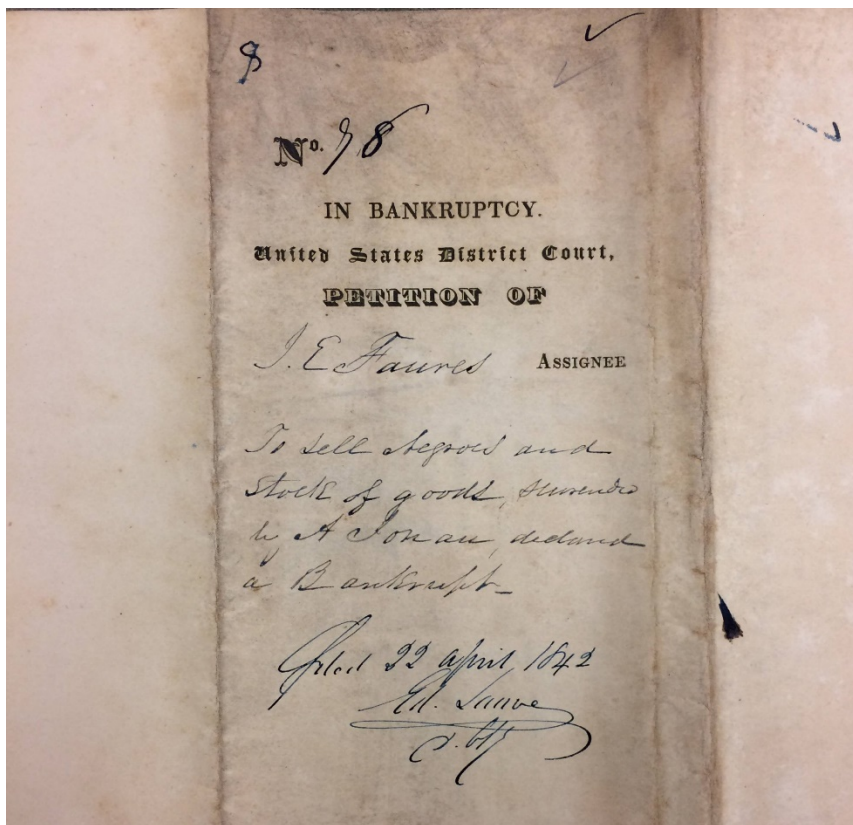 No. 78
IN BANKRUPTCY.
United States District Court,
PETITION OF
J. E Faures ASSIGNEE
To sell Negroes and
stock of goods, surrendd
by A Jonau, declared
a Bankrupt_
filed 22 april, 1842
Ed. Lauve